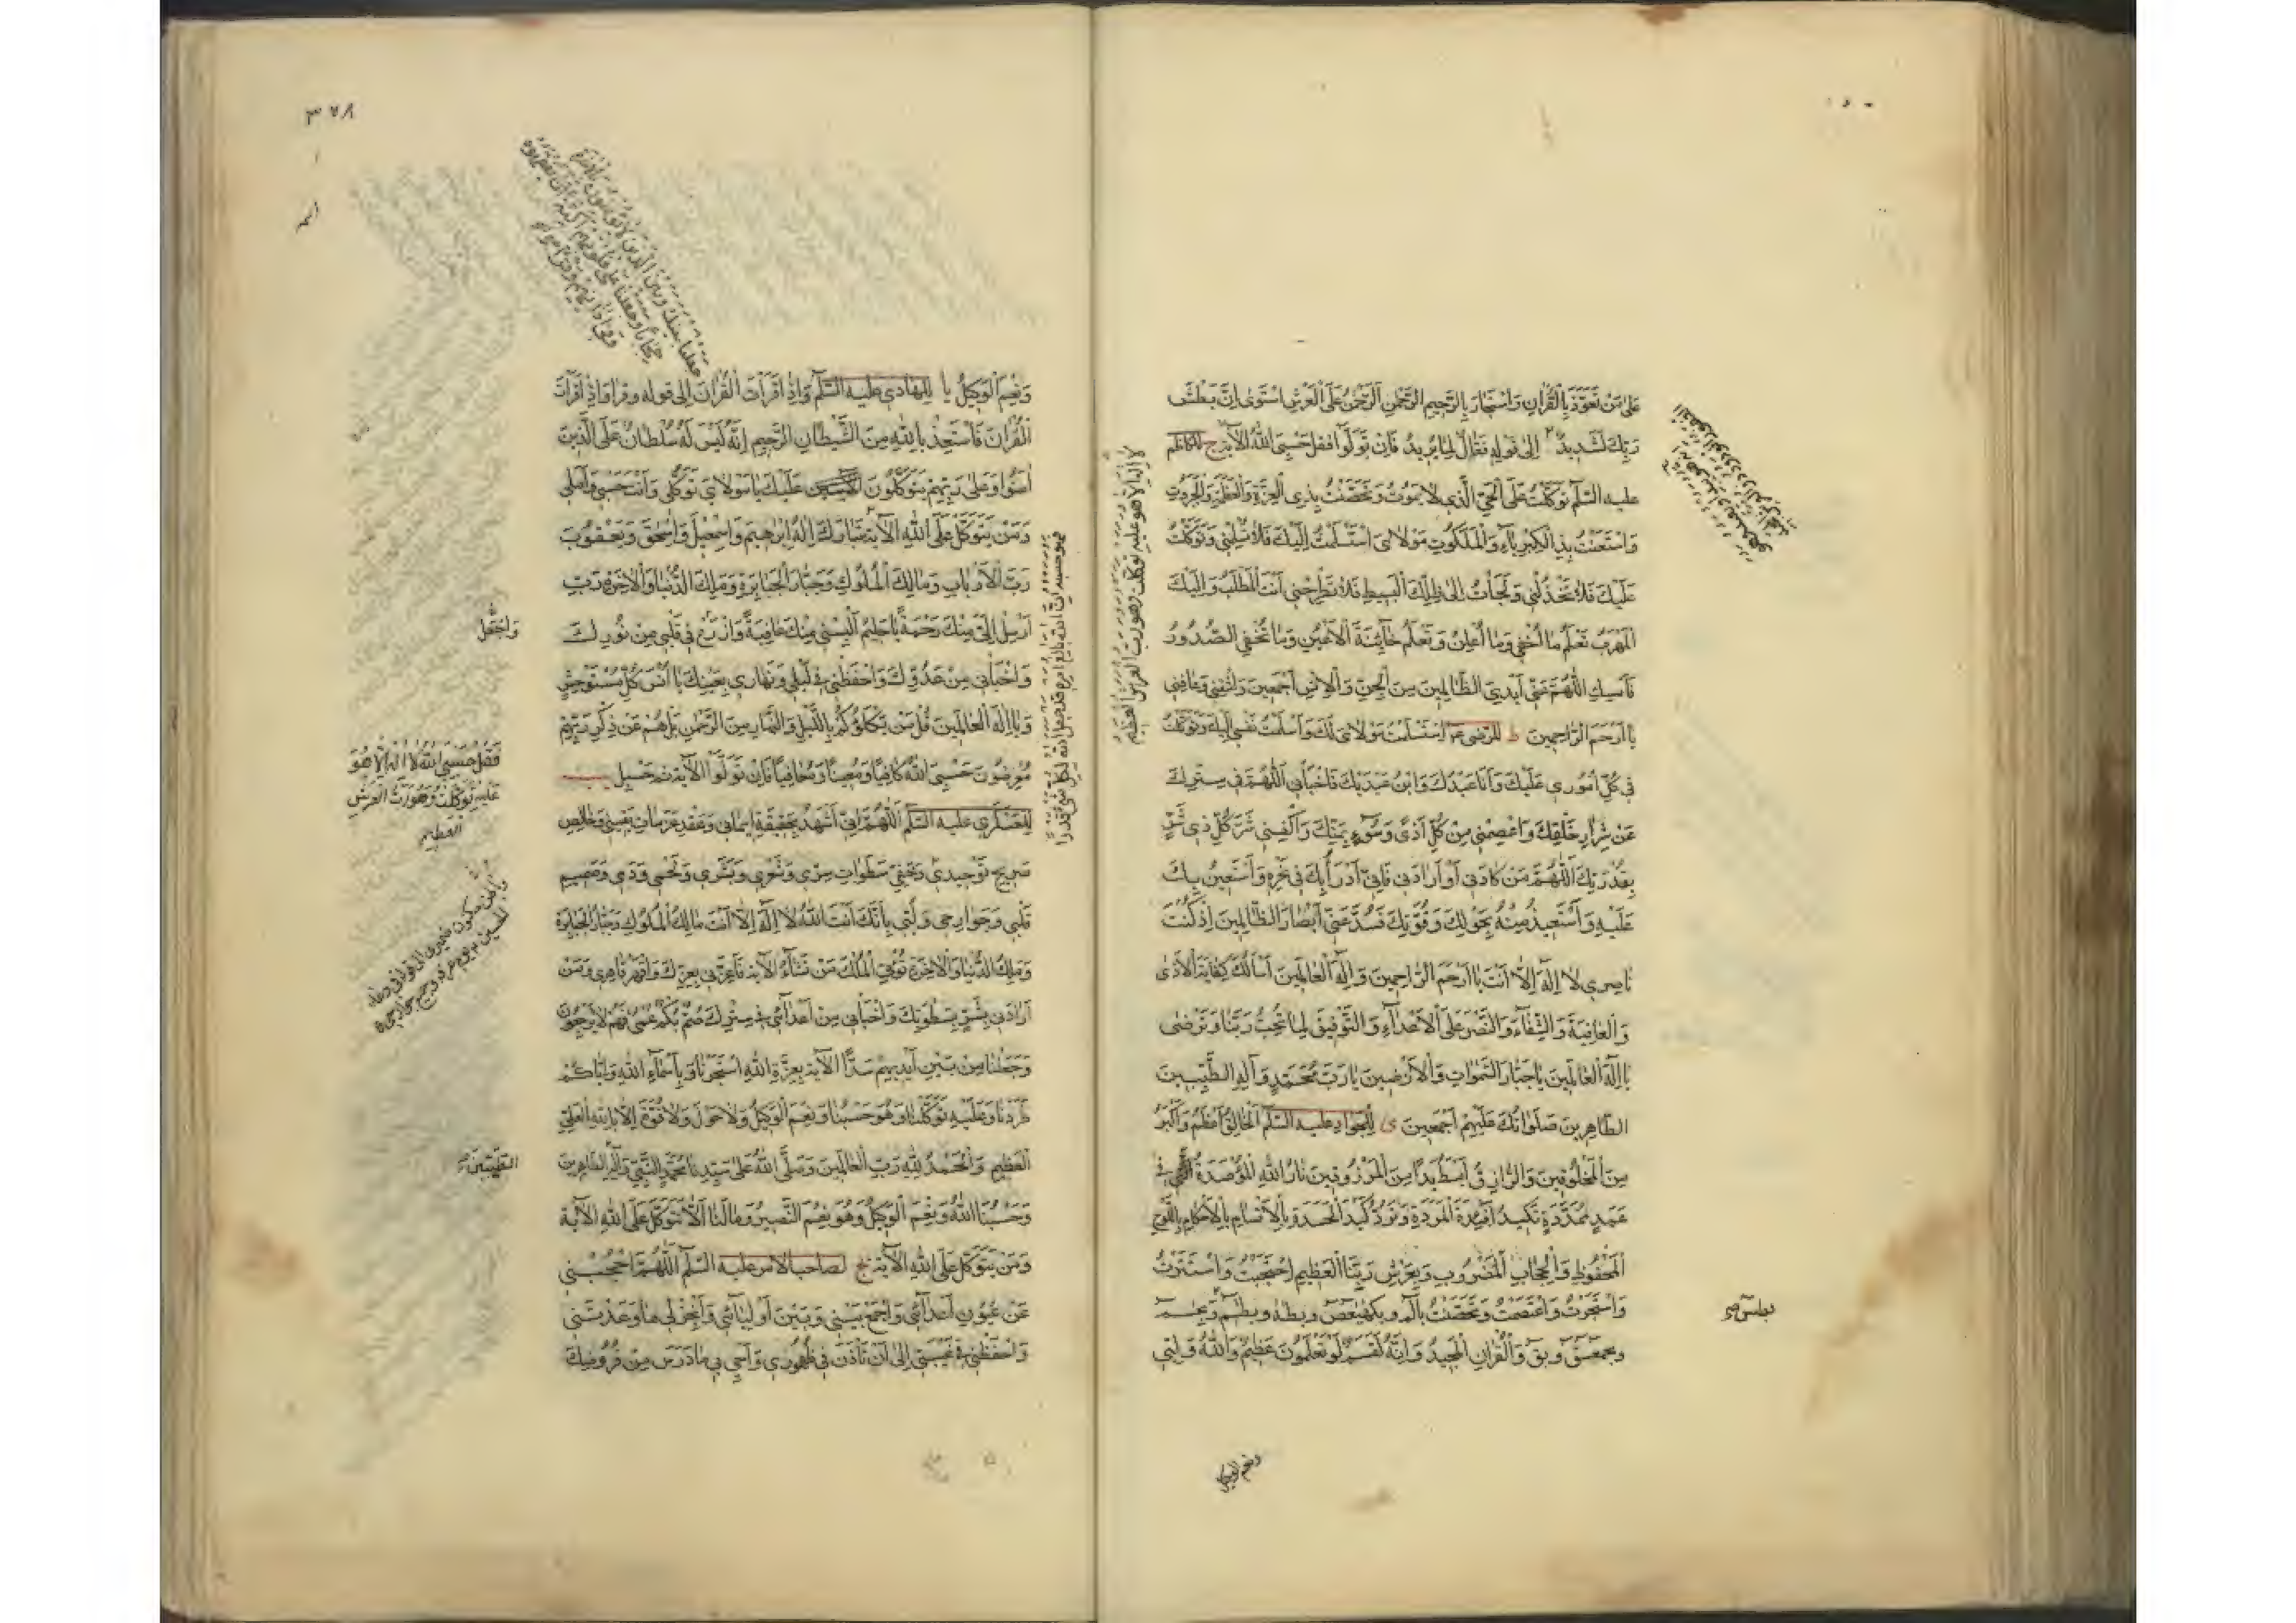 على من تعوذ بالقرآن واستجار بالرحيم الرحمن الرحمن على العرش استوى إن بطش
ربك لشديد إلى قوله فعال لما يريد فإن تولوا فقل حسبي الله الآية ح للكاظم
عليه السلم توكلت على الحي الذي لا يموت وتحصنت بذي العزة والعظمة والجبروت
واستعنت بذي الكبرياء والملكوت مولاي استسلمت إليك فلا تسلمني وتوكلت
عليك فلا تخذلني ولجأت إلى ظلك البسيط فلا تطرحني أنت المطلب وإليك
المهرب تعلم ما أخفي وما أعلن وتعلم خائنة الأعين وما تخفي الصدور
فأمسك اللهم عني أيدي الظالمين من الجن والإنس أجمعين واشفني وعافني
يا أرحم الراحمين ط للرضى ع م استسلمت مولاي لك وأسلمت نفسي إليك وتوكلت
في كل أموري عليك وأنا عبدك وابن عبديك فاخبأني اللهم في سترك
عن شرار خلقك واعصمني من كل أذى وسوء بمنك واكفني شر كل ذي شر
بقدرتك اللهم من كادني أو أرادني فإني أدرأ بك في نحره وأستعين بك
عليه وأستعيذ منه بحولك وقوتك فسد عني أبصار الظالمين إذ كنت
ناصري لا إله إلا أنت يا أرحم الراحمين وإله العالمين أسألك كفاية الأذى
والعافية والشفاء والنصر على الأعداء والتوفيق لما تحب ربنا وترضى
يا إله العالمين يا جبار السموات والأرضين يا رب محمد وآله الطيبين
الطاهرين صلواتك عليهم أجمعين ى للجواد عليه السلم الخالق أعظم وأكبر
من المخلوقين والرازق أبسط يدا من المرزوقين نار الله المؤصدة في
عمد ممددة تكيد أفئدة المردة وترد كيد الحسدة بالأقسام بالأحكام باللوح
المحفوظ والحجاب المضروب وبعرش ربنا العظيم احتجبت واستترت
واستجرت واعتصمت وتحصنت بالم وبكهيعص وبطه وبطسم وبحم
وبحمعسق وبق والقرآن المجيد وإنه لقسم لو تعلمون عظيم والله وليي
لا إله إلا هو عليه توكلت وهو رب العرش العظيم
ونعم الوكيل
٣٧٨
ونعم الوكيل يا للهادي عليه السلم وإذا قرأت القرآن إلى قوله وقرا وإذا قرأت
القرآن فاستعذ بالله من الشيطان الرجيم إنه ليس له سلطان على الذين
آمنوا وعلى ربهم يتوكلون عليك يا مولاي توكلي وأنت حسبي وأملي
ومن يتوكل على الله الآية تبارك إله إبراهيم وإسمعيل وإسحق ويعقوب
رب الأرباب ومالك الملوك وجبار الجبابرة وملك الدنيا والآخرة رب
أرسل إلي منك رحمة يا حليم ألبسني منك عافية وازرع في قلبي من نورك
واخبأني من عدوك واحفظني في ليلي ونهاري بعينك يا أنس كل مستوحش
ويا إله العالمين قل من يكلؤكم بالليل والنهار من الرحمن بل هم عن ذكر ربهم
معرضون حسبي الله كافيا ومعينا ومعافيا فإن تولوا الآية
للعسكري عليه السلم اللهم إني أشهد بحقيقة إيماني وعقد عزمات يقيني وخالص
صريح توحيدي وخفي سطوات سري وشعري وبشري ولحمي ودمي وصميم
قلبي وجوارحي ولبي بأنك أنت الله لا إله إلا أنت مالك الملوك وجبار الجبابرة
وملك الدنيا والآخرة تؤتي الملك من تشاء الآية فأعزني بعزك واقهر قاهري ومن
أرادني بشر بسطوتك واخبأني من أعدائي في سترك صم بكم عمي فهم لا يرجعون
وجعلنا من بين أيديهم سدا الآية بعزة الله استجرنا وبأسماء الله وإياكم
طردنا وعليه توكلنا وهو حسبنا ونعم الوكيل ولا حول ولا قوة إلا بالله العلي
العظيم والحمد لله رب العالمين وصلى الله على سيدنا محمد النبي وآله الطاهرين
وحسبنا الله ونعم الوكيل وهو نعم النصير وما لنا ألا نتوكل على الله الآية
ومن يتوكل على الله الآية يج لصاحب الأمر عليه السلم اللهم احجبني
عن عيون أعدائي واجمع بيني وبين أوليائي وأنجز لي ما وعدتني
واحفظني في غيبتي إلى أن تأذن في ظهوري وأحي بي ما درس من فروضك
فهو حسبه إن الله بالغ أمره قد جعل الله لكل شيء قدرا
جعلنا بينك وبين الذين لا يؤمنون بالآخرة
حجابا مستورا وجعلنا على قلوبهم أكنة أن يفقهوه
وفي آذانهم وقرا
واجعل
فقل حسبي الله لا إله إلا هو
عليه توكلت وهو رب العرش
العظيم
الطيبين